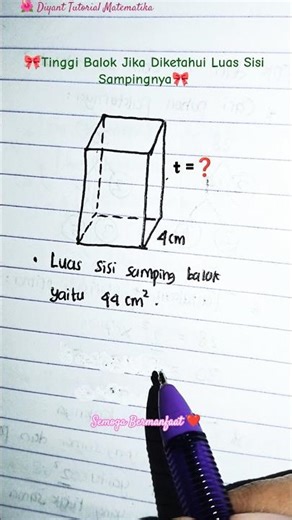 Diyant Tutorial Matematika
🎀Tinggi Balok Jika Diketahui Luas Sisi
Sampingnya🎀
t = ❓
4cm
• Luas sisi samping balok
yaitu 44 cm².
Semoga Bermanfaat ❤️